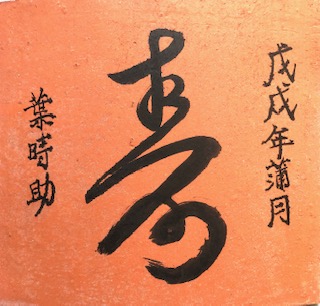 戊戌年蒲月
寿
葉時助